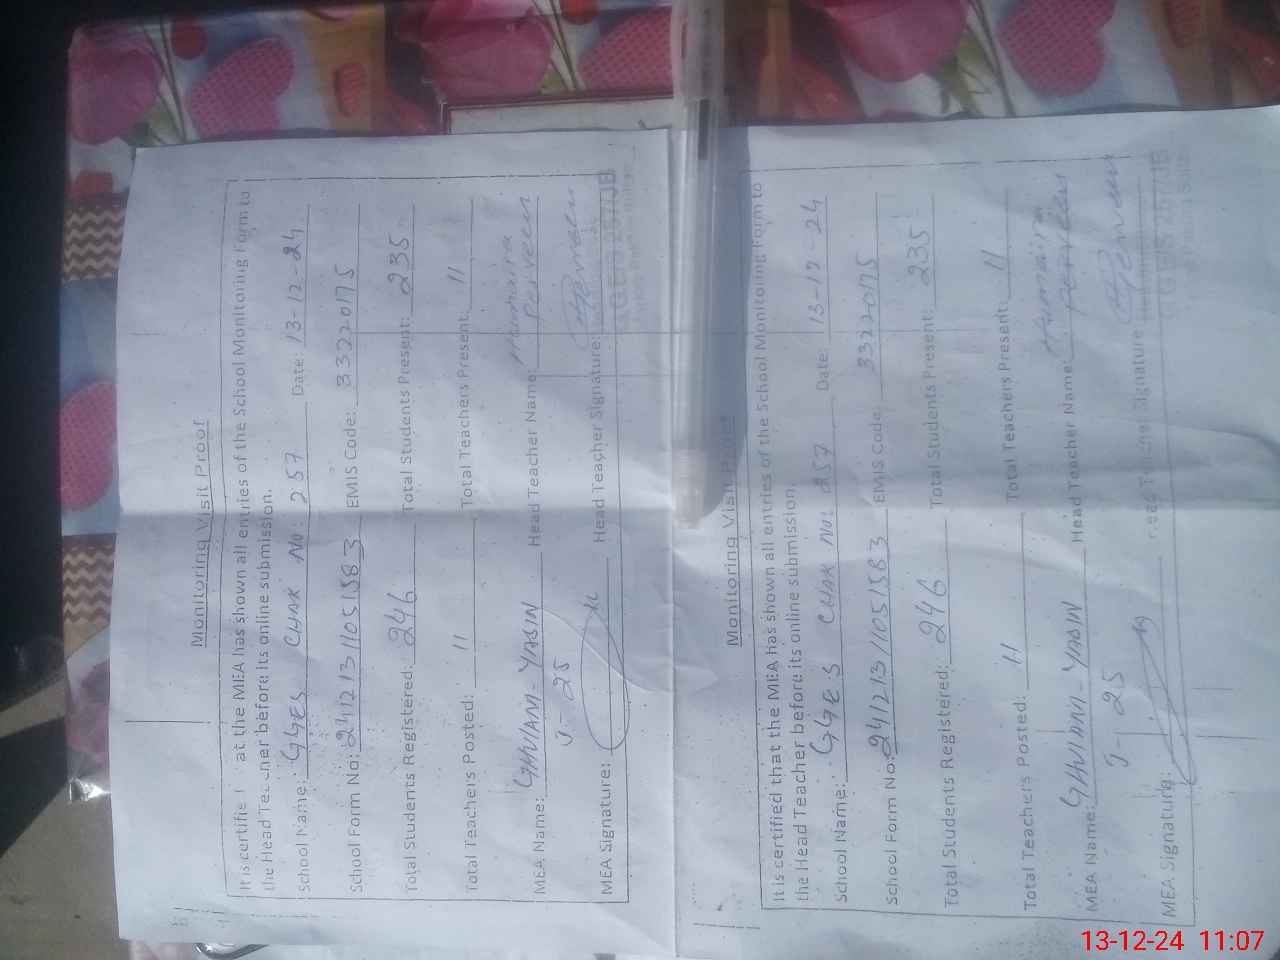 Monitoring Visit Proof
It is certifie at the MEA has shown all entries of the School Monitoring Form to
the Head Te ner before its online submission.
School Name: GGES CHAK No: 257 Date: 13-12-24
School Form No: 24121311051583 EMIS Code: 33220175
Total Students Registered: 246 Total Students Present: 235
Total Teachers Posted: 11 Total Teachers Present: 11
Humaira
MEA Name: GHULAM-YASIN Head Teacher Name: Perveen
J-25
MEA Signature: Head Teacher Signature:
GGES 257/JB
Monitoring Visit
It is certified that the MEA has shown all entries of the School Monitoring Form to
the Head Teacher before its online submission.
School Name: GGES CHAK No: 257 Date: 13-12-24
School Form No: 24121311051583 EMIS Code: 33220175
Total Students Registered: 246 Total Students Present: 235
Total Teachers Posted: 11 Total Teachers Present: 11
Humaira
MEA Name: GHULAM-YASIN Head Teacher Name: Perveen
J-25
MEA Signature: Head Teacher Signature
GGES 257/JB
13-12-24 11:07